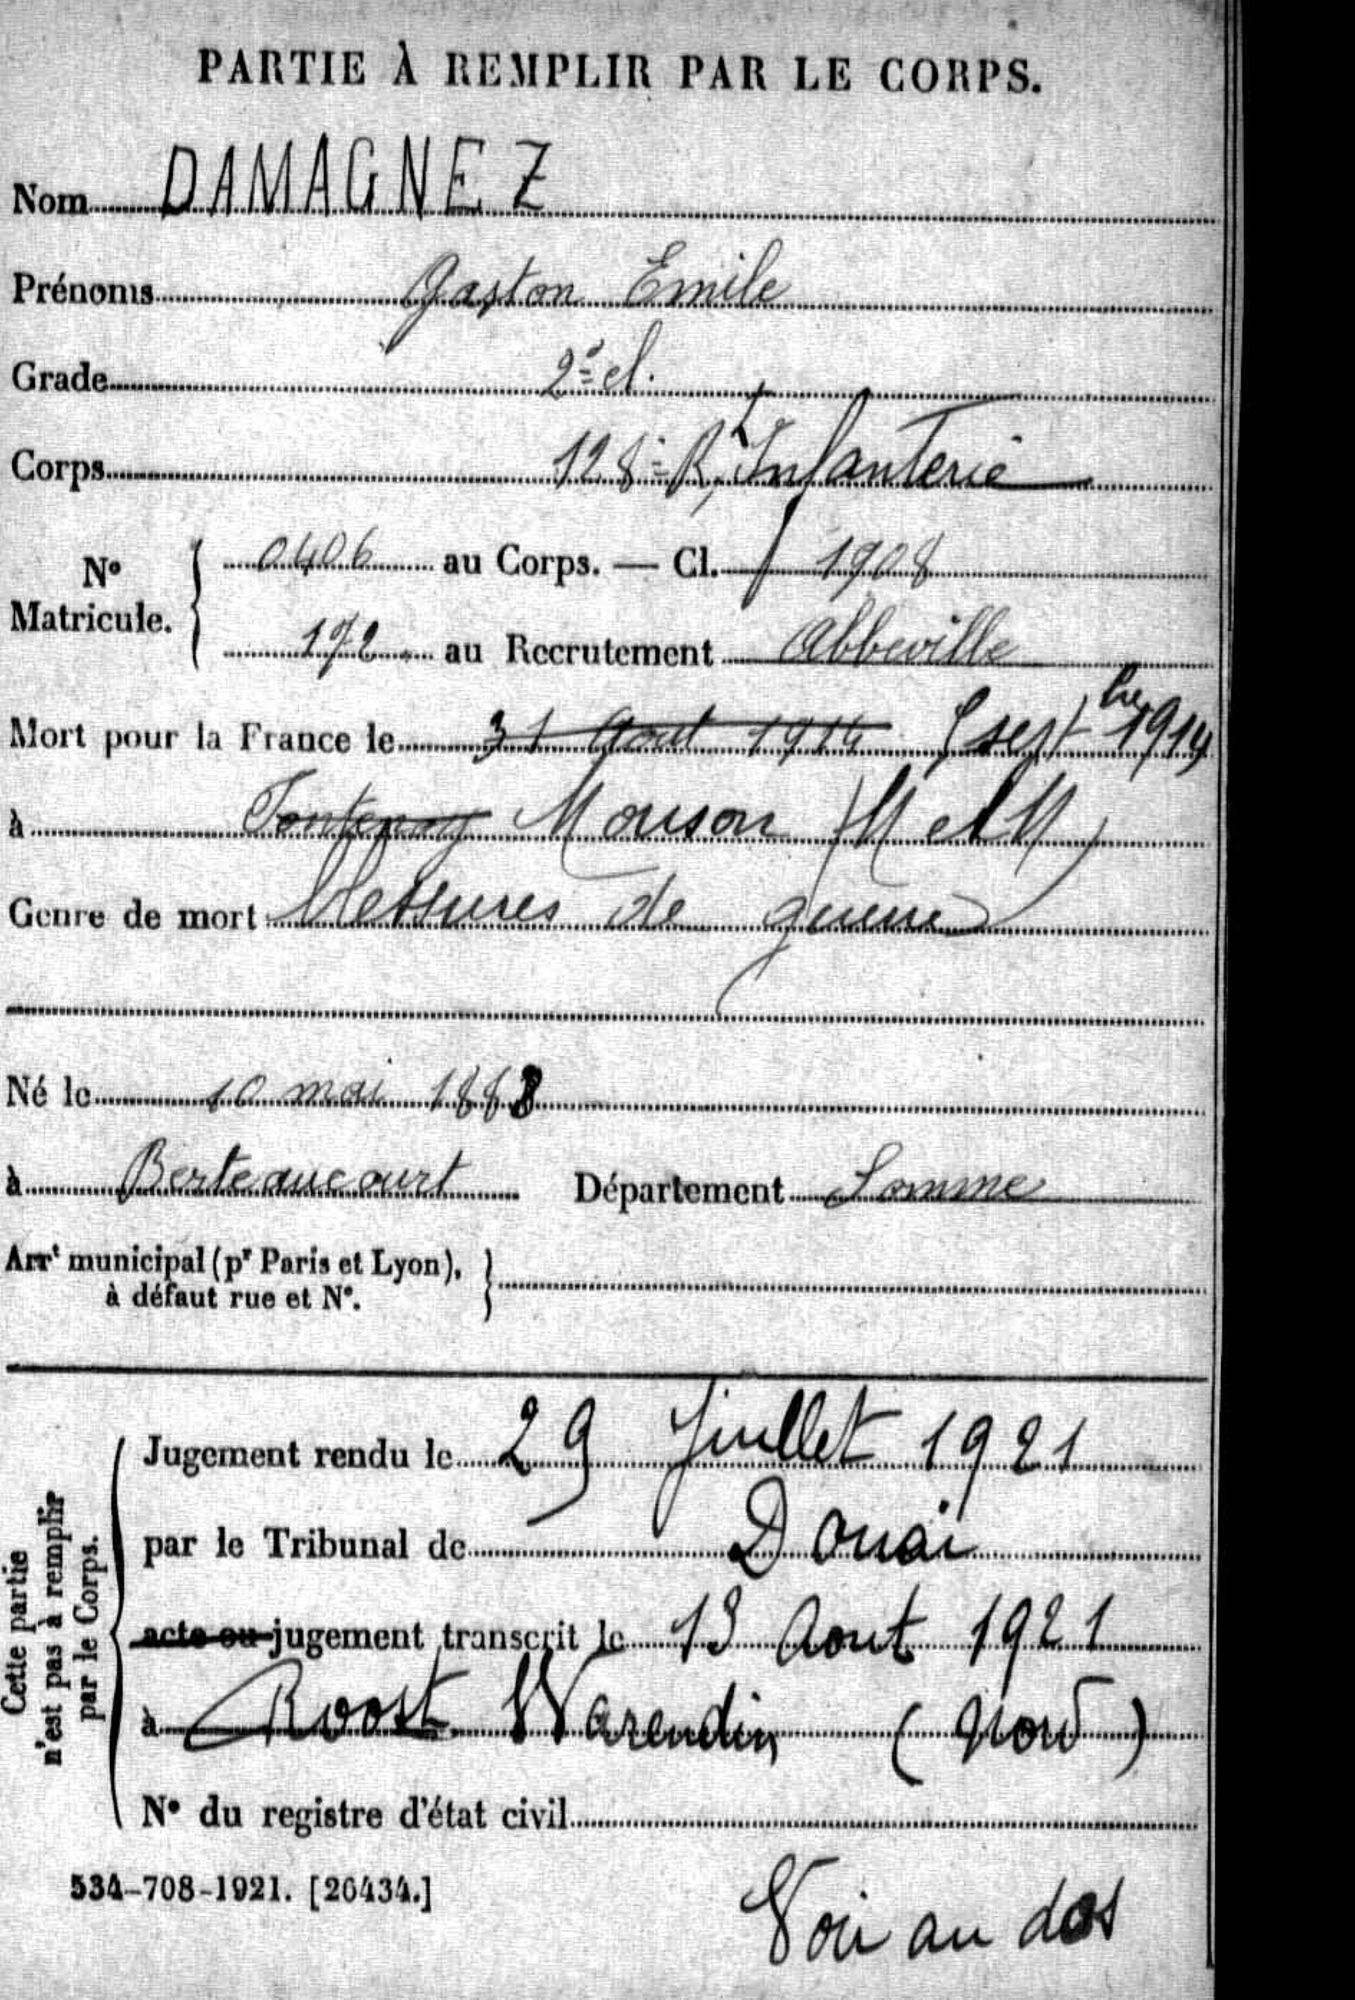 PARTIE À REMPLIR PAR LE CORPS.
Nom DAMAGNEZ
Prénoms Gaston Emile
Grade 2e cl.
Corps 128e Rt Infanterie
No Matricule. 0406 au Corps. — Cl. 1908
172 au Recrutement Abbeville
Mort pour la France le 31 Août 1914 sept bre 1914
à Fontenoy Mouson (M et M)
Genre de mort blessures de guerre
Né le 10 mai 1888
à Berteaucourt Département Somme
Arrt municipal (pr Paris et Lyon), à défaut rue et No.
Cette partie n'est pas à remplir par le Corps.
Jugement rendu le 29 Juillet 1921
par le Tribunal de Douai
acte ou jugement transcrit le 13 Aout 1921
à Roost Warendin (Nord)
No du registre d'état civil
534-708-1921. [26434.]
Voir au dos